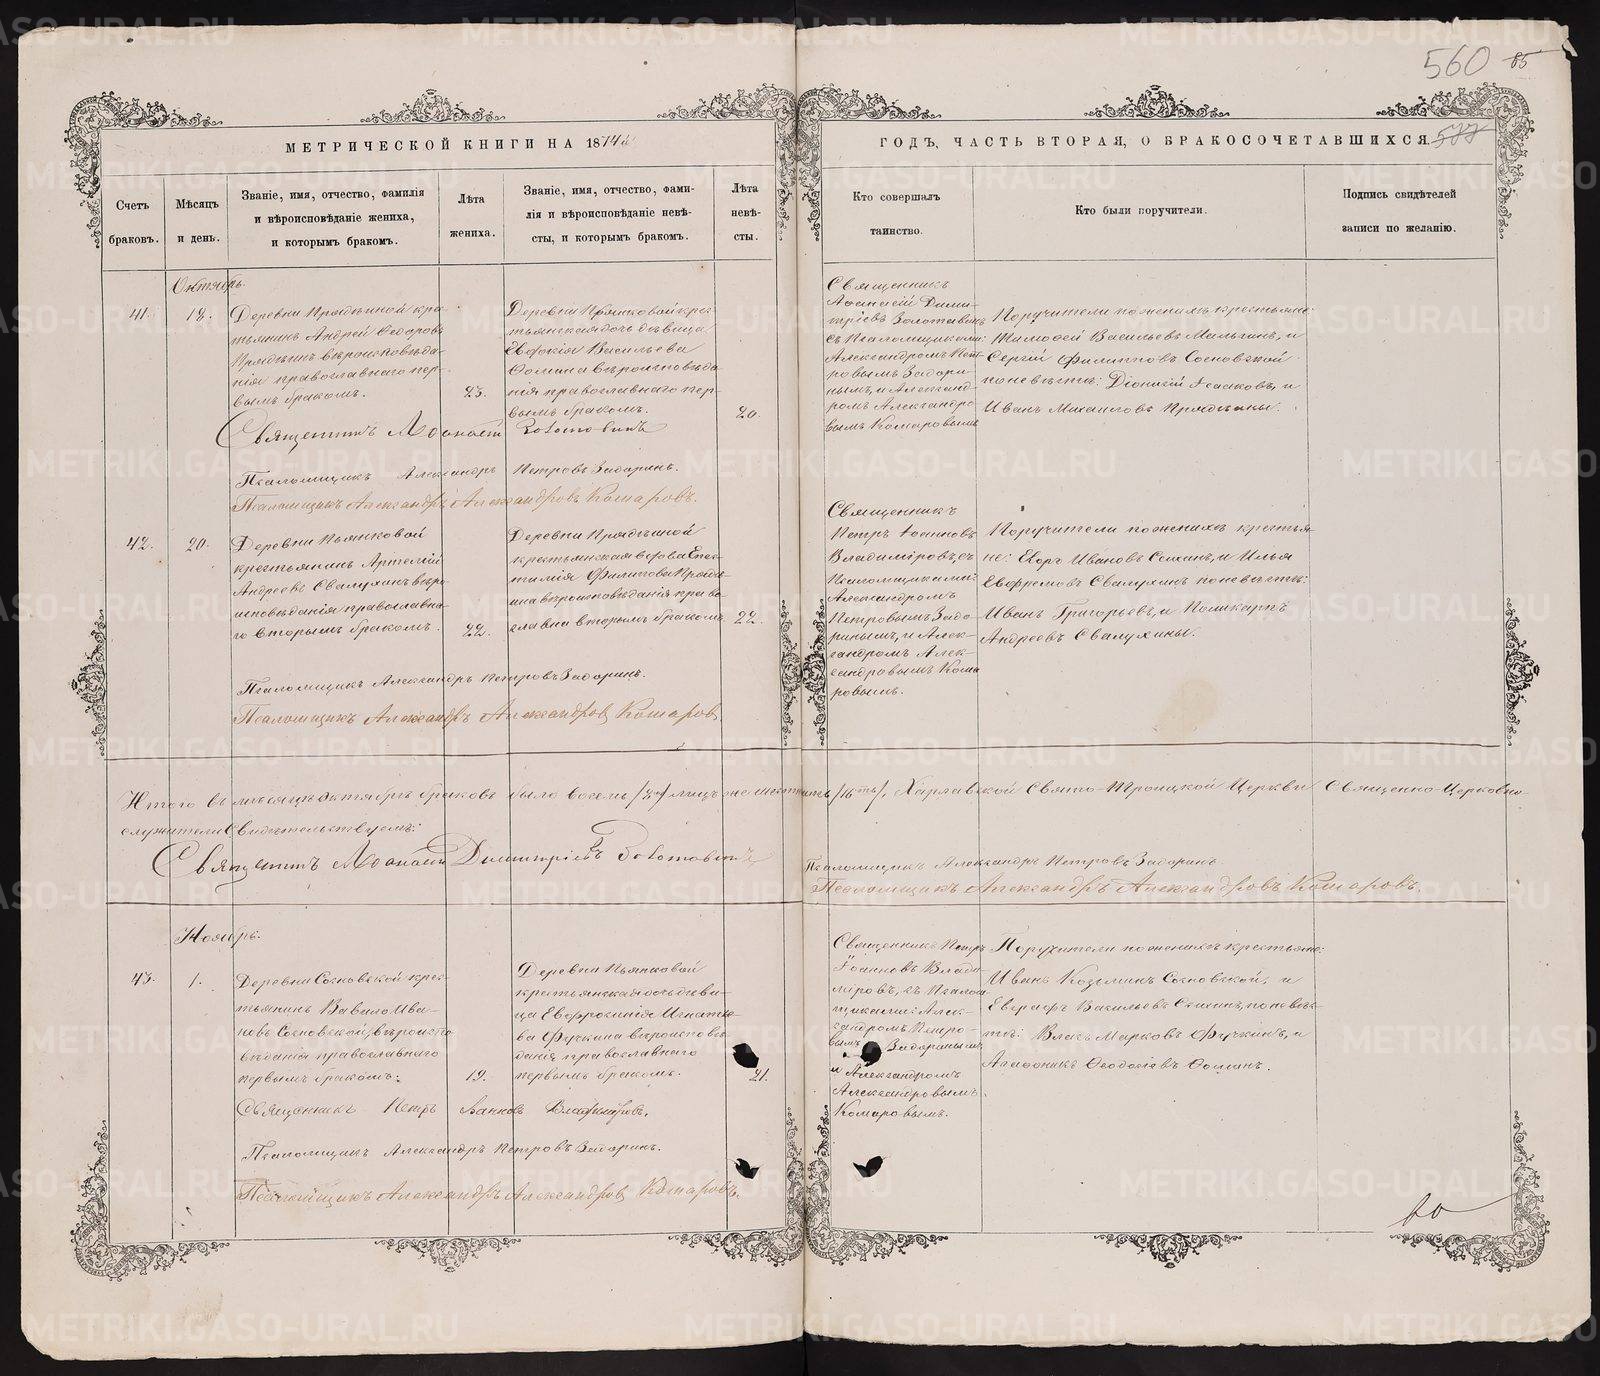 560 85
МЕТРИЧЕСКОЙ КНИГИ НА 1874й
ГОДЪ, ЧАСТЬ ВТОРАЯ, О БРАКОСОЧЕТАВШИХСЯ. 577
Счетъ
браковъ.
Мѣсяцъ
и день.
Званіе, имя, отчество, фамилія
и вѣроисповѣданіе жениха,
и которымъ бракомъ.
Лѣта
жениха.
Званіе, имя, отчество, фами-
лія и вѣроисповѣданіе невѣ-
сты, и которымъ бракомъ.
Лѣта
невѣ-
сты.
Кто совершалъ
таинство.
Кто были поручители.
Подпись свидѣтелей
записи по желанію.
Октябрь.
41.
18.
Деревни Прядѣиной кре-
тьянинъ Андрей Ѳедоровъ
Прядѣинъ вѣроисповѣда-
нія православнаго пер-
вымъ бракомъ.
23.
Деревни Пьянковой крес-
тьянская дочь дѣвица
Евдокія Васильева
Ѳомина вѣроисповѣда-
нія православнаго пер-
вымъ бракомъ.
20.
Священникъ
Аѳанасій Дими-
тріевъ Золотавинъ
съ Псаломщиками:
Александромъ Пет-
ровымъ Задори-
нымъ, и Александ-
ромъ Александро-
вымъ Комаровымъ
Поручители по женихѣ крестьяне:
Тимоѳей Васильевъ Мальгинъ, и
Сергій Филипповъ Сосновской
по невѣстѣ: Діонисій Исааковъ, и
Иванъ Михаиловъ Прядѣины.
Священникъ Аѳанасій Золотавинъ
Псаломщикъ Александръ Петровъ Задоринъ.
Псаломщикъ Александръ Александровъ Комаровъ.
42.
20.
Деревни Пьянковой
крестьянинъ Артемій
Андреевъ Свалухинъ вѣро-
исповѣданія православна-
го вторымъ бракомъ.
22.
Деревни Прядѣиной
крестьянская вдова Епис-
тимія Филипова Прядѣ-
ина вѣроисповѣданія право-
славна вторымъ бракомъ.
22.
Священникъ
Петръ Іоанновъ
Владиміровъ, съ
Псаломщиками:
Александромъ
Петровымъ Задо-
ринымъ, и Алек-
сандромъ Алек-
сандровымъ Кома-
ровымъ.
Поручители по женихѣ крестья-
не: Егоръ Ивановъ Сенинъ, и Илья
Евфремовъ Свалухинъ по невѣстѣ:
Иванъ Григорьевъ, и Поликарпъ
Андреевъ Свалухины.
Псаломщикъ Александръ Петровъ Задоринъ.
Псаломщикъ Александръ Александровъ Комаровъ
Итого въ мѣсяцѣ октябрѣ браковъ было восемь /8/ лицъ же шестнадцать /16ть/. Харлавской Свято-Троицкой Церкви Священно-Церковно-
служители Свидѣтельствуемъ:
Священникъ Аѳанасій Димитріевъ Золотавинъ
Псаломщикъ Александръ Петровъ Задоринъ
Псаломщикъ Александръ Александровъ Комаровъ.
Ноябрь.
43.
1.
Деревни Сосновской крес-
тьянинъ Вавило Ива-
новъ Сосновской, вѣроиспо-
вѣданія православнаго
первымъ бракомъ.
19.
Деревни Пьянковой
крестьянская дочь дѣви-
ца Евфросинія Игнатье-
ва Фучкина вѣроисповѣ-
данія православнаго
первымъ бракомъ.
21.
Священникъ Петръ
Іоанновъ Влади-
міровъ, съ Псалом-
щиками: Алек-
сандромъ Петро-
вымъ Задоринымъ
и Александромъ
Александровымъ
Комаровымъ.
Поручители по женихѣ крестьяне:
Иванъ Козьминъ Сосновской, и
Евграфъ Васильевъ Сенинъ, по невѣс-
тѣ: Власъ Марковъ Фучкинъ, и
Агафоникъ Ѳеодосіевъ Ѳоминъ.
Священникъ Петръ Іоанновъ Владиміровъ.
Псаломщикъ Александръ Петровъ Задоринъ.
Псаломщикъ Александръ Александровъ Комаровъ.
METRIKI.GASO-URAL.RU